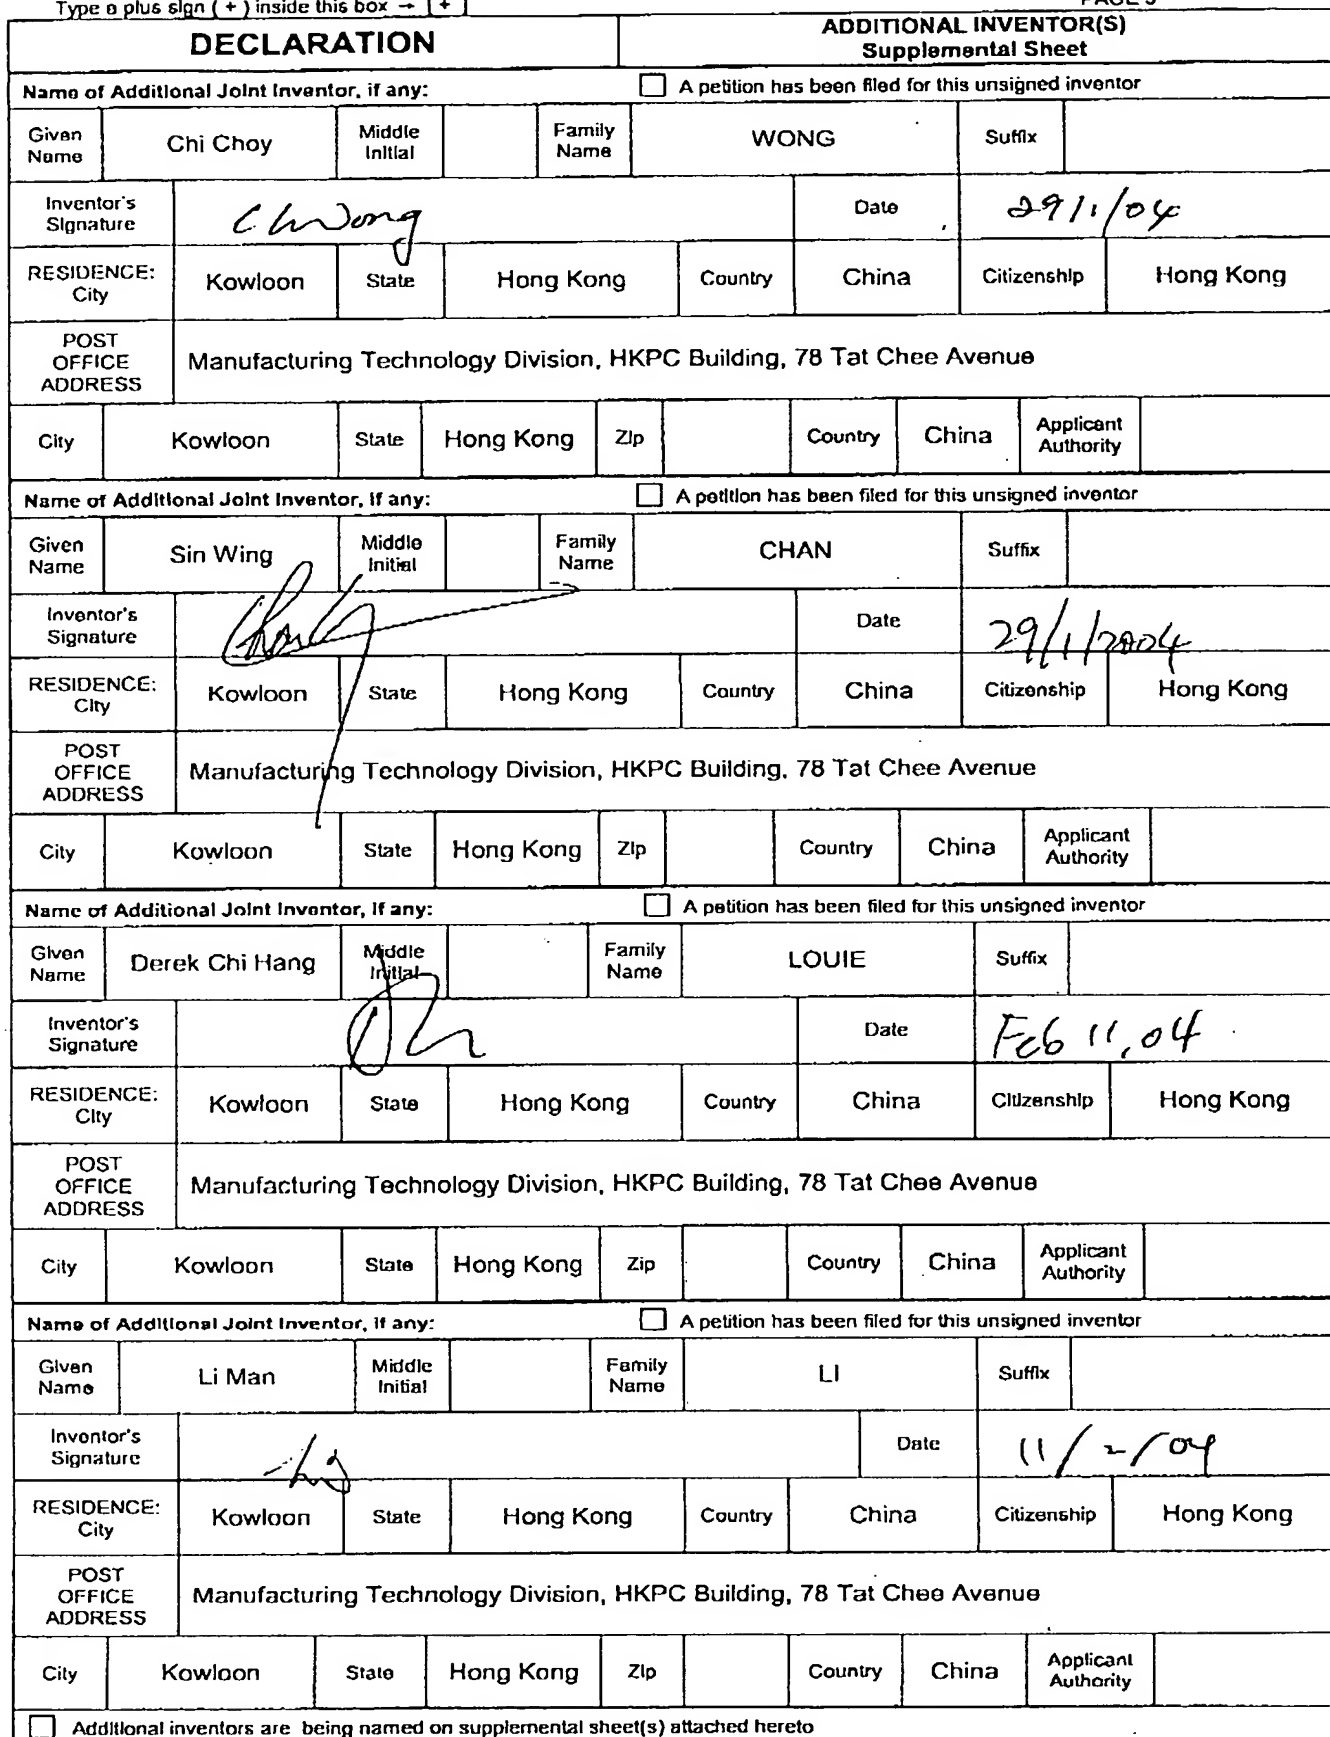 Type a plus sign ( + ) inside this box → [ + ]
DECLARATION
ADDITIONAL INVENTOR(S)
Supplemental Sheet
Name of Additional Joint Inventor, if any: A petition has been filed for this unsigned inventor
Given Name Chi Choy Middle Initial Family Name WONG Suffix
Inventor's Signature C h Wong Date 29/1/04
RESIDENCE: City Kowloon State Hong Kong Country China Citizenship Hong Kong
POST OFFICE ADDRESS Manufacturing Technology Division, HKPC Building, 78 Tat Chee Avenue
City Kowloon State Hong Kong Zip Country China Applicant Authority
Name of Additional Joint Inventor, if any: A petition has been filed for this unsigned inventor
Given Name Sin Wing Middle Initial Family Name CHAN Suffix
Inventor's Signature Date 29/1/2004
RESIDENCE: City Kowloon State Hong Kong Country China Citizenship Hong Kong
POST OFFICE ADDRESS Manufacturing Technology Division, HKPC Building, 78 Tat Chee Avenue
City Kowloon State Hong Kong Zip Country China Applicant Authority
Name of Additional Joint Inventor, if any: A petition has been filed for this unsigned inventor
Given Name Derek Chi Hang Middle Initial Family Name LOUIE Suffix
Inventor's Signature Date Feb 11, 04
RESIDENCE: City Kowloon State Hong Kong Country China Citizenship Hong Kong
POST OFFICE ADDRESS Manufacturing Technology Division, HKPC Building, 78 Tat Chee Avenue
City Kowloon State Hong Kong Zip Country China Applicant Authority
Name of Additional Joint Inventor, if any: A petition has been filed for this unsigned inventor
Given Name Li Man Middle Initial Family Name LI Suffix
Inventor's Signature Date 11/2/04
RESIDENCE: City Kowloon State Hong Kong Country China Citizenship Hong Kong
POST OFFICE ADDRESS Manufacturing Technology Division, HKPC Building, 78 Tat Chee Avenue
City Kowloon State Hong Kong Zip Country China Applicant Authority
Additional inventors are being named on supplemental sheet(s) attached hereto